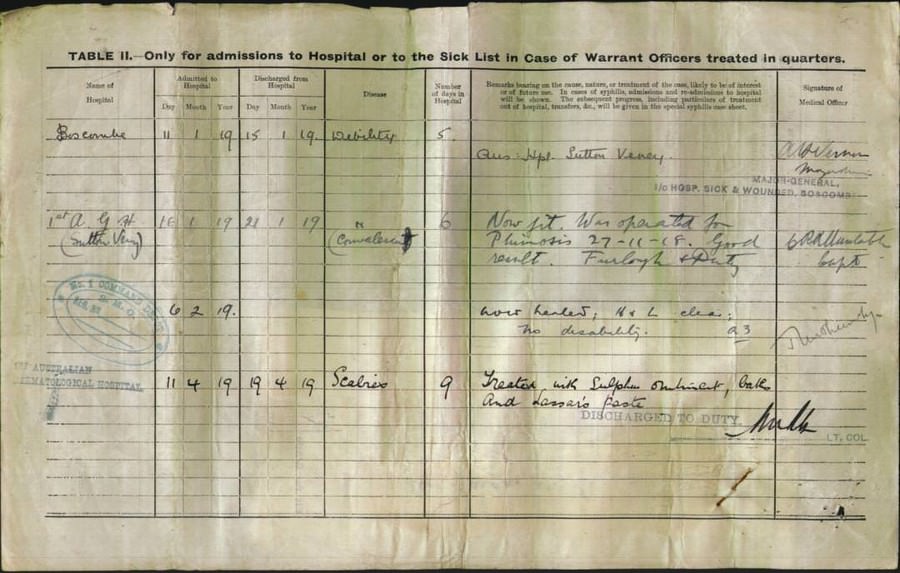 TABLE II.—Only for admissions to Hospital or to the Sick List in Case of Warrant Officers treated in quarters.
Name of Hospital
Admitted to Hospital
Day Month Year
Discharged from Hospital
Day Month Year
Disease
Number of days in Hospital
Remarks bearing on the cause, nature, or treatment of the case, likely to be of interest
or of future use. In cases of syphilis, admissions and re-admissions to hospital
will be shown. The subsequent progress, including particulars of treatment
out of hospital, transfers, &c., will be given in the special syphilis case sheet.
Signature of Medical Officer
Boscombe 11 1 19 15 1 19 Debility 5
Aus: Hpl. Sutton Veney.
Vernon
MAJOR-GENERAL,
i/c HOSP. SICK & WOUNDED, BOSCOMBE
1st A G H 16 1 19 21 1 19 " 6 Now fit. Was operated for
(Sutton Veny) (Convalescent) Phimosis 27-11-18. Good
result. Furlough & Duty
Capt
No. 1 COMMAND
6 2 19. Now healed; H & L clear;
no disability. a3
1ST AUSTRALIAN
DERMATOLOGICAL HOSPITAL
11 4 19 19 4 19 Scabies 9 Treated with Sulphur ointment, baths
and Lassar's Paste
DISCHARGED TO DUTY
LT. COL